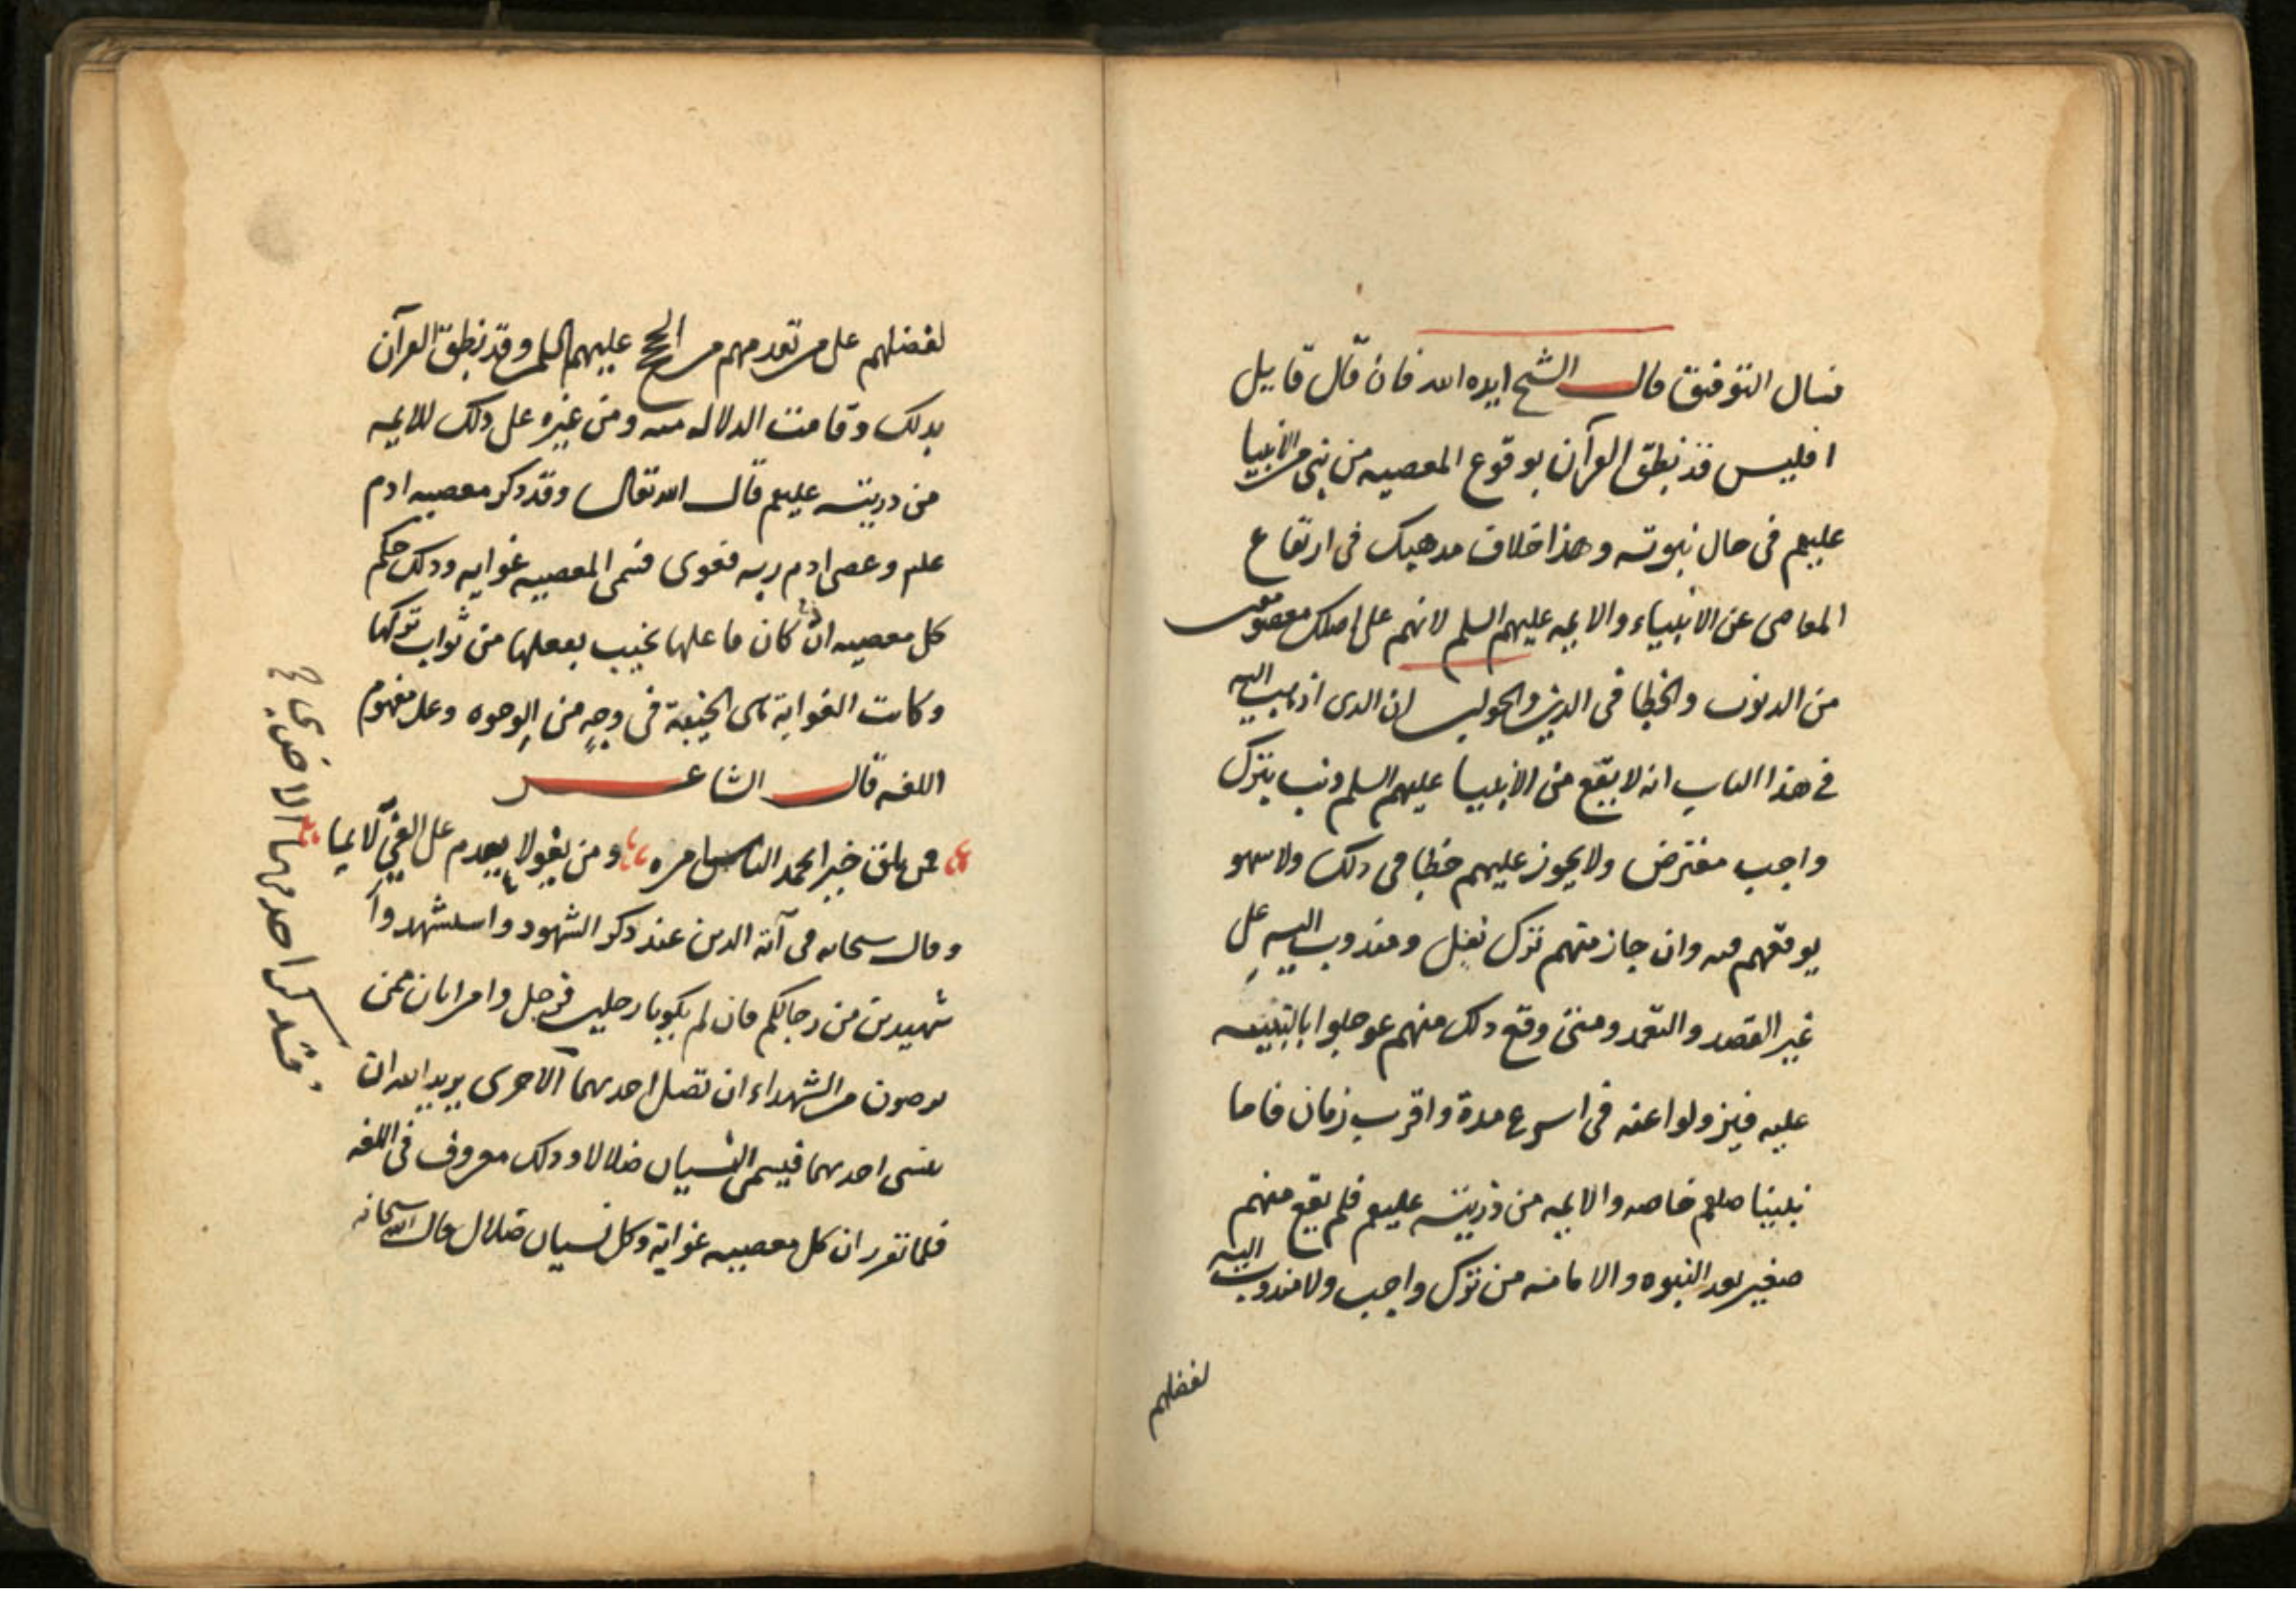 نسال التوفيق قال الشيخ ايده الله فان قال قايل
افليس قد نطق القرآن بوقوع المعصيه من نبى من الانبيا
عليهم فى حال نبوته وهذا خلاف مدهبك فى ارتفاع
المعاصى عن الانبياء والايمه عليهم السلم لانهم على اصلك معصومون
من الدنوب والخطا فى الدين والجواب ان الدى اذهب اليه
فى هذا الباب انه لا يقع من الانبيا عليهم السلم دنب بترك
واجب مفترض ولا يجوز عليهم خطا فى دلك ولا سهو
يوقعهم فيه وان جاز منهم ترك نفل ومندوب اليه على
غير القصد والتعمد ومتى وقع دلك منهم عوجلوا بالتنبيه
عليه فيزولوا عنه فى اسرع مدة واقرب زمان فاما
نبينا صلعم خاصه والايمه من ذريته عليهم فلم يقع منهم
صغير بعد النبوه والامامه من ترك واجب ولا مندوب اليه
لفضلهم
لفضلهم على من تقدمهم من الحجج عليهم السلم وقد نطق القرآن
بدلك وقامت الدلاله منه ومن غيره على دلك للايمه
من دريته عليهم قال الله تعالى وقد دكر معصيه ادم
علم وعصى ادم ربه فغوى فسمى المعصيه غوايه ودلك حكم
كل معصيه ان كان فاعلها يخيب بفعلها من ثواب تركها
وكانت الغواية هى الخيبة فى وجهٍ من الوجوه وعلى مفهوم
اللغه قال الشاعر
فمن يلق خيرا يحمد الناس امره ومن يغو لا يعدم على الغى لايما
وقال سبحانه فى آية الدين عند دكر الشهود واستشهدوا
شهيدين من رجالكم فان لم يكونا رجلين فرجل وامراتان ممن
ترضون من الشهداء ان تضل احديهما الاخرى يريد الله ان
تنسى احديهما فيسمى النسيان ضلالا ودلك معروف فى اللغه
فلما تقرر ان كل معصيه غواية وكل نسيان ضلال قال الله سبحانه
فتدكر احديهما الاخرى